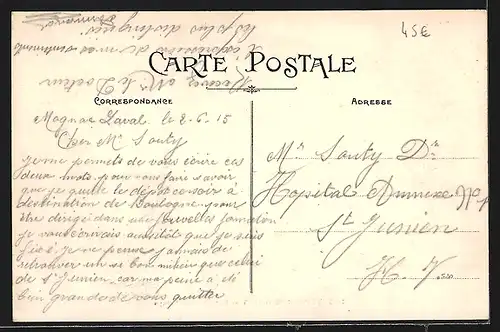 45E
CARTE POSTALE
CORRESPONDANCE
ADRESSE
Magnac Laval le 2-6-15
Cher Mr Souty
je me permets de vous écrire ces
deux mots pour vous faire savoir
que je quitte le dépôt ce soir à
destination de Boulogne pour
être dirigé dans une nouvelles formation
je vous écrivais aussitôt que je suis
fixé. je ne pense jamais de
retrouver un si bon milieu que celui
de St Junien, car ma peine a été
bien grande de vous quitter
Recevez Mr le Docteur
l'expression de mes sentiments
les plus distingués.
Mr Souty Dr
Hopital Annexe No
St Junien
H. V.